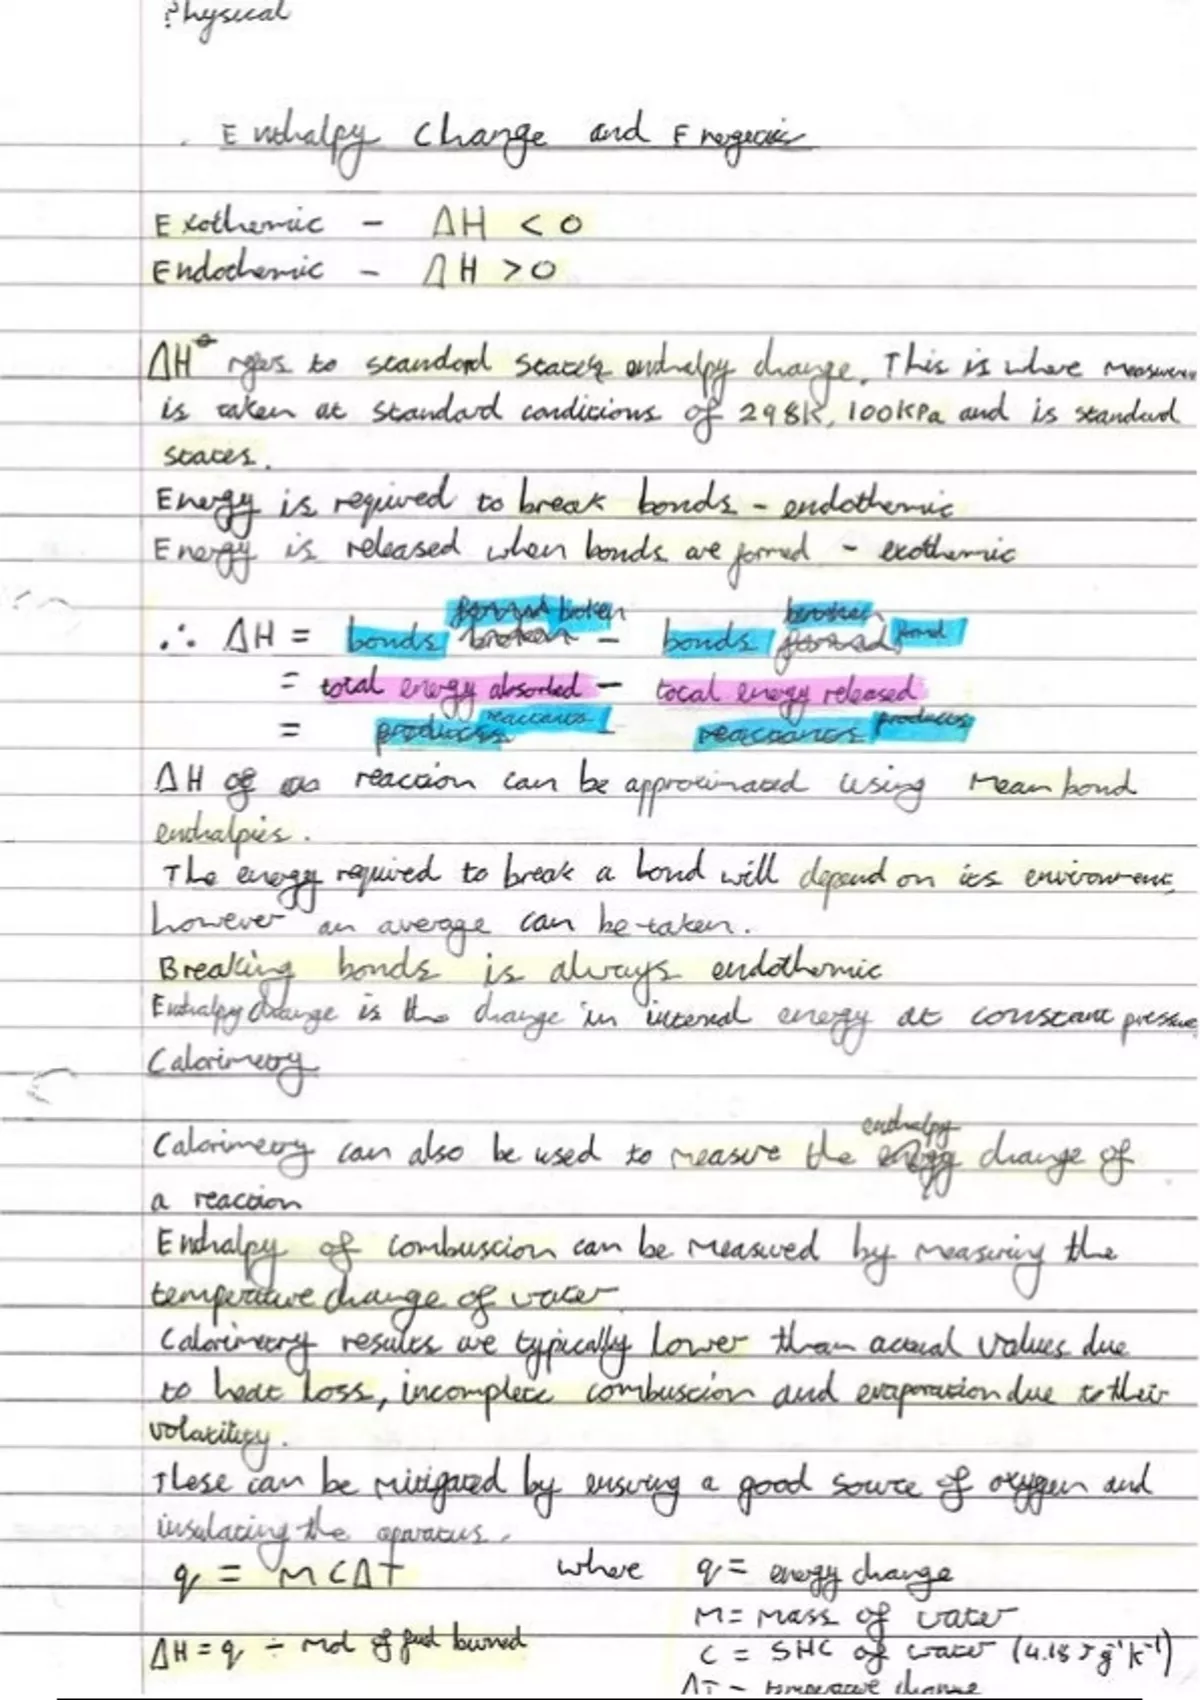 Physical
Enthalpy Change and Energetics
Exothermic - ΔH < 0
Endothermic - ΔH > 0
ΔH⦵ refers to standard states enthalpy change. This is where measurem
is taken at standard conditions of 298K, 100KPa and is standard
states.
Energy is required to break bonds - endothermic
Energy is released when bonds are formed - exothermic
broken broken
∴ ΔH = bonds broken - bonds formed formed
= total energy absorbed - total energy released
reactants products
= products - reactants
ΔH of a reaction can be approximated using mean bond
enthalpies.
The energy required to break a bond will depend on its environment,
however an average can be taken.
Breaking bonds is always endothermic
Enthalpy change is the change in internal energy at constant pressure
Calorimetry
enthalpy
Calorimetry can also be used to measure the energy change of
a reaction
Enthalpy of combustion can be measured by measuring the
temperature change of water
Calorimetry results are typically lower than actual values due
to heat loss, incomplete combustion and evaporation due to their
volatility.
These can be mitigated by ensuring a good source of oxygen and
insulating the aparatus.
q = MCΔT where q = energy change
M = mass of water
ΔH = q ÷ mol of fuel burned C = SHC of water (4.18 J g⁻¹ K⁻¹)
ΔT - temperature change